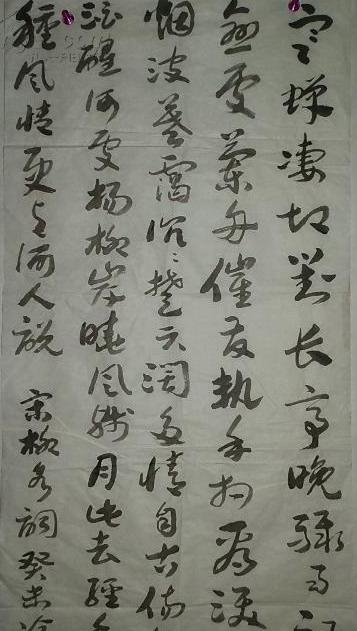 寒蝉凄切对长亭晚骤雨
处兰舟催发执手相看泪
烟波暮霭沉沉楚天阔多情自古伤
酒醒何处杨柳岸晓风残月此去经年
種风情更与何人说 宋柳永词癸未